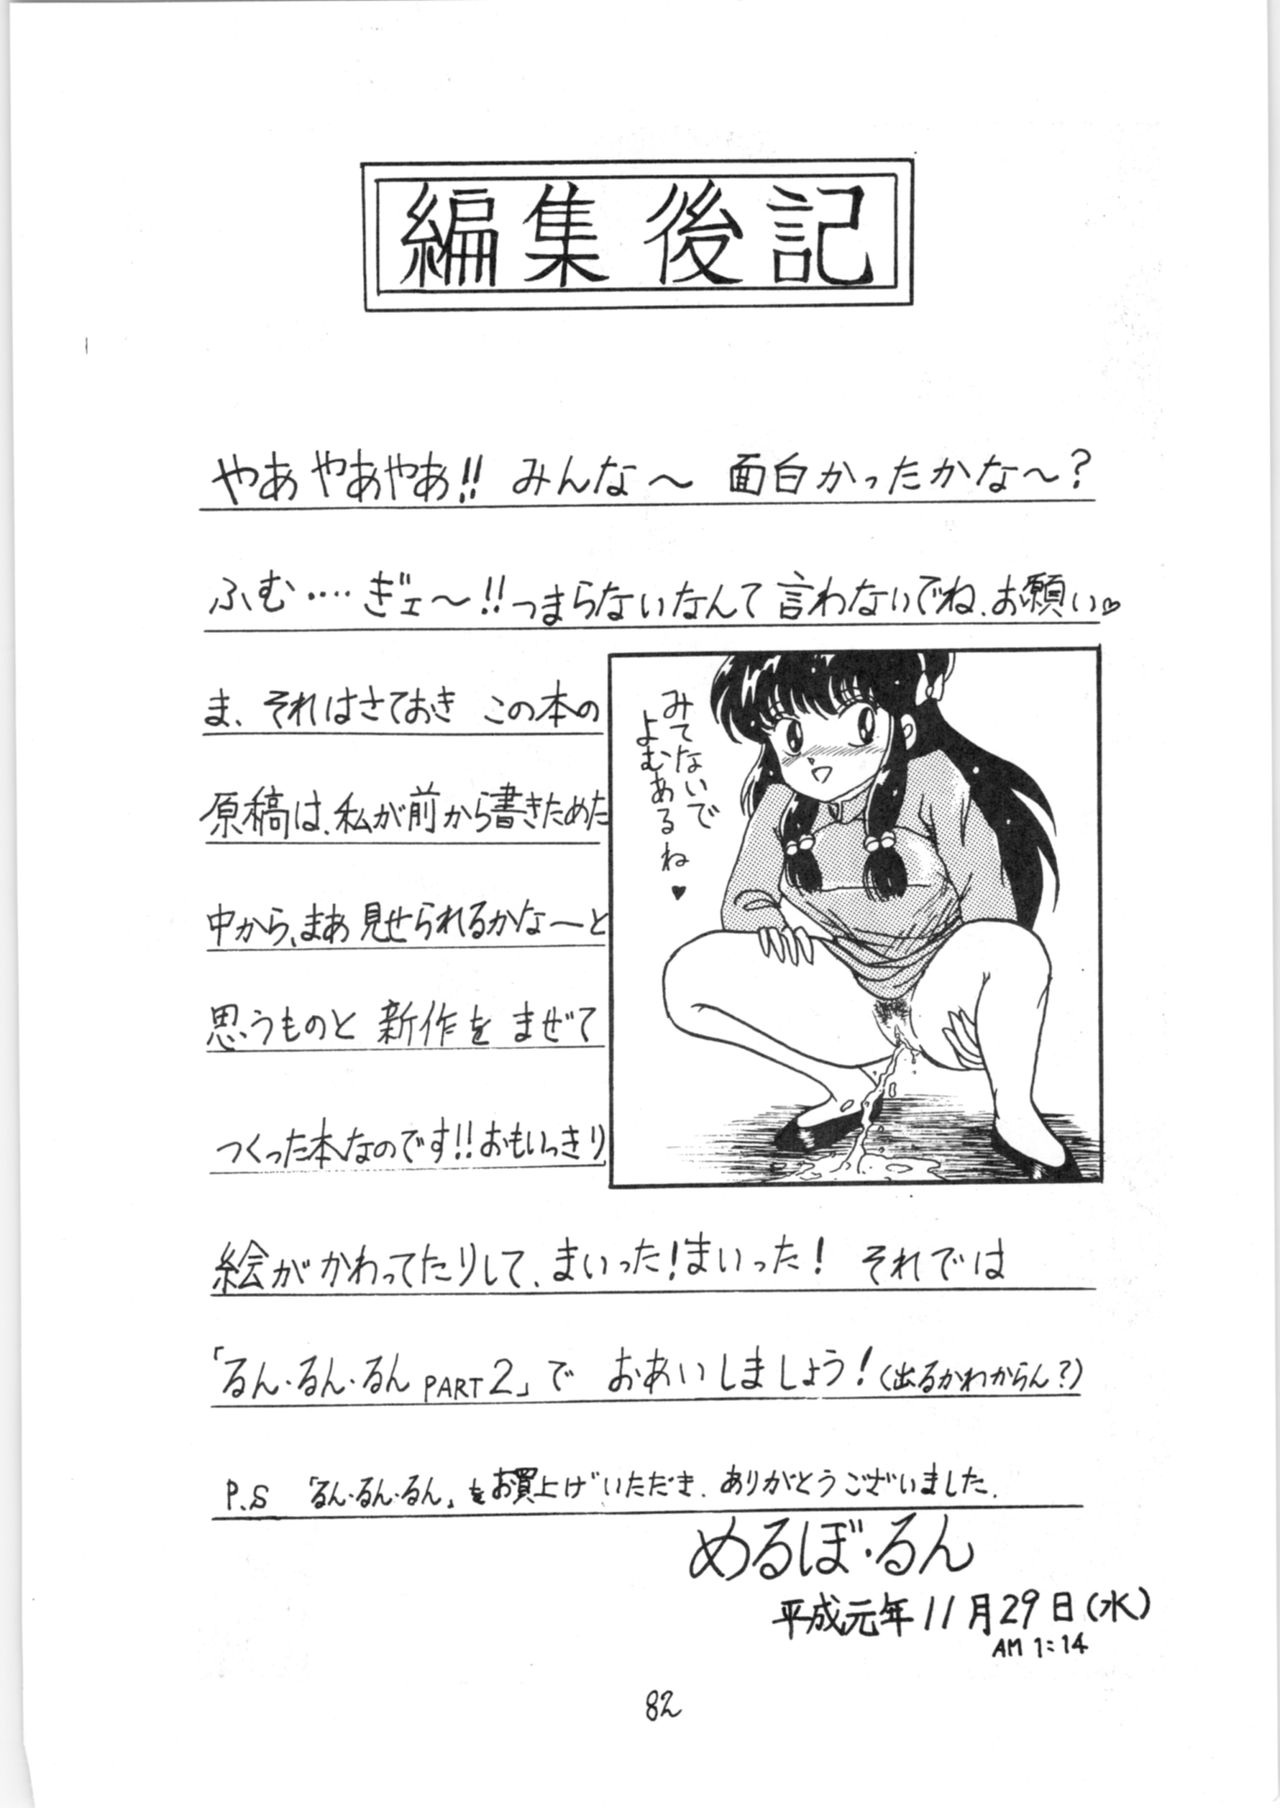 編集後記
やあ やあやあ!! みんな～ 面白かったかな～?
ふむ‥‥ぎェ～!!つまらないなんて言わないでね、お願い♡
ま、それはさておき この本の
原稿は、私が前から書きためた
中から、まあ見せられるかな～と
思うものと 新作を まぜて
つくった本なのです!!おもいっきり
みてないで
よむあるね♥
絵がかわってたりして、まいった!まいった! それでは
「るん・るん・るん PART2」で おあいしましょう!(出るかわからん?)
P.S 「るん・るん・るん」をお買上げいただき、ありがとうございました.
めるぼ・るん
平成元年11月29日(水)
AM 1:14
82